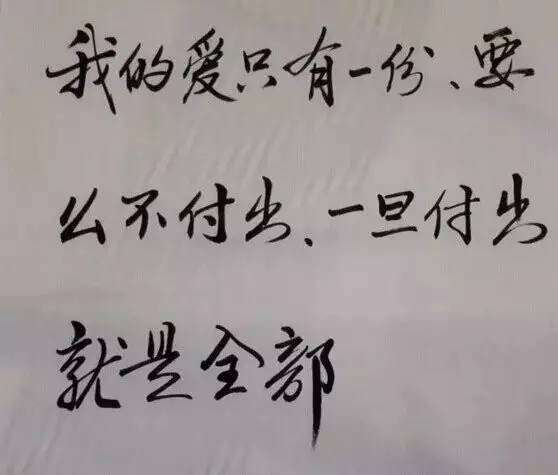 我的爱只有一份、要
么不付出、一旦付出
就是全部